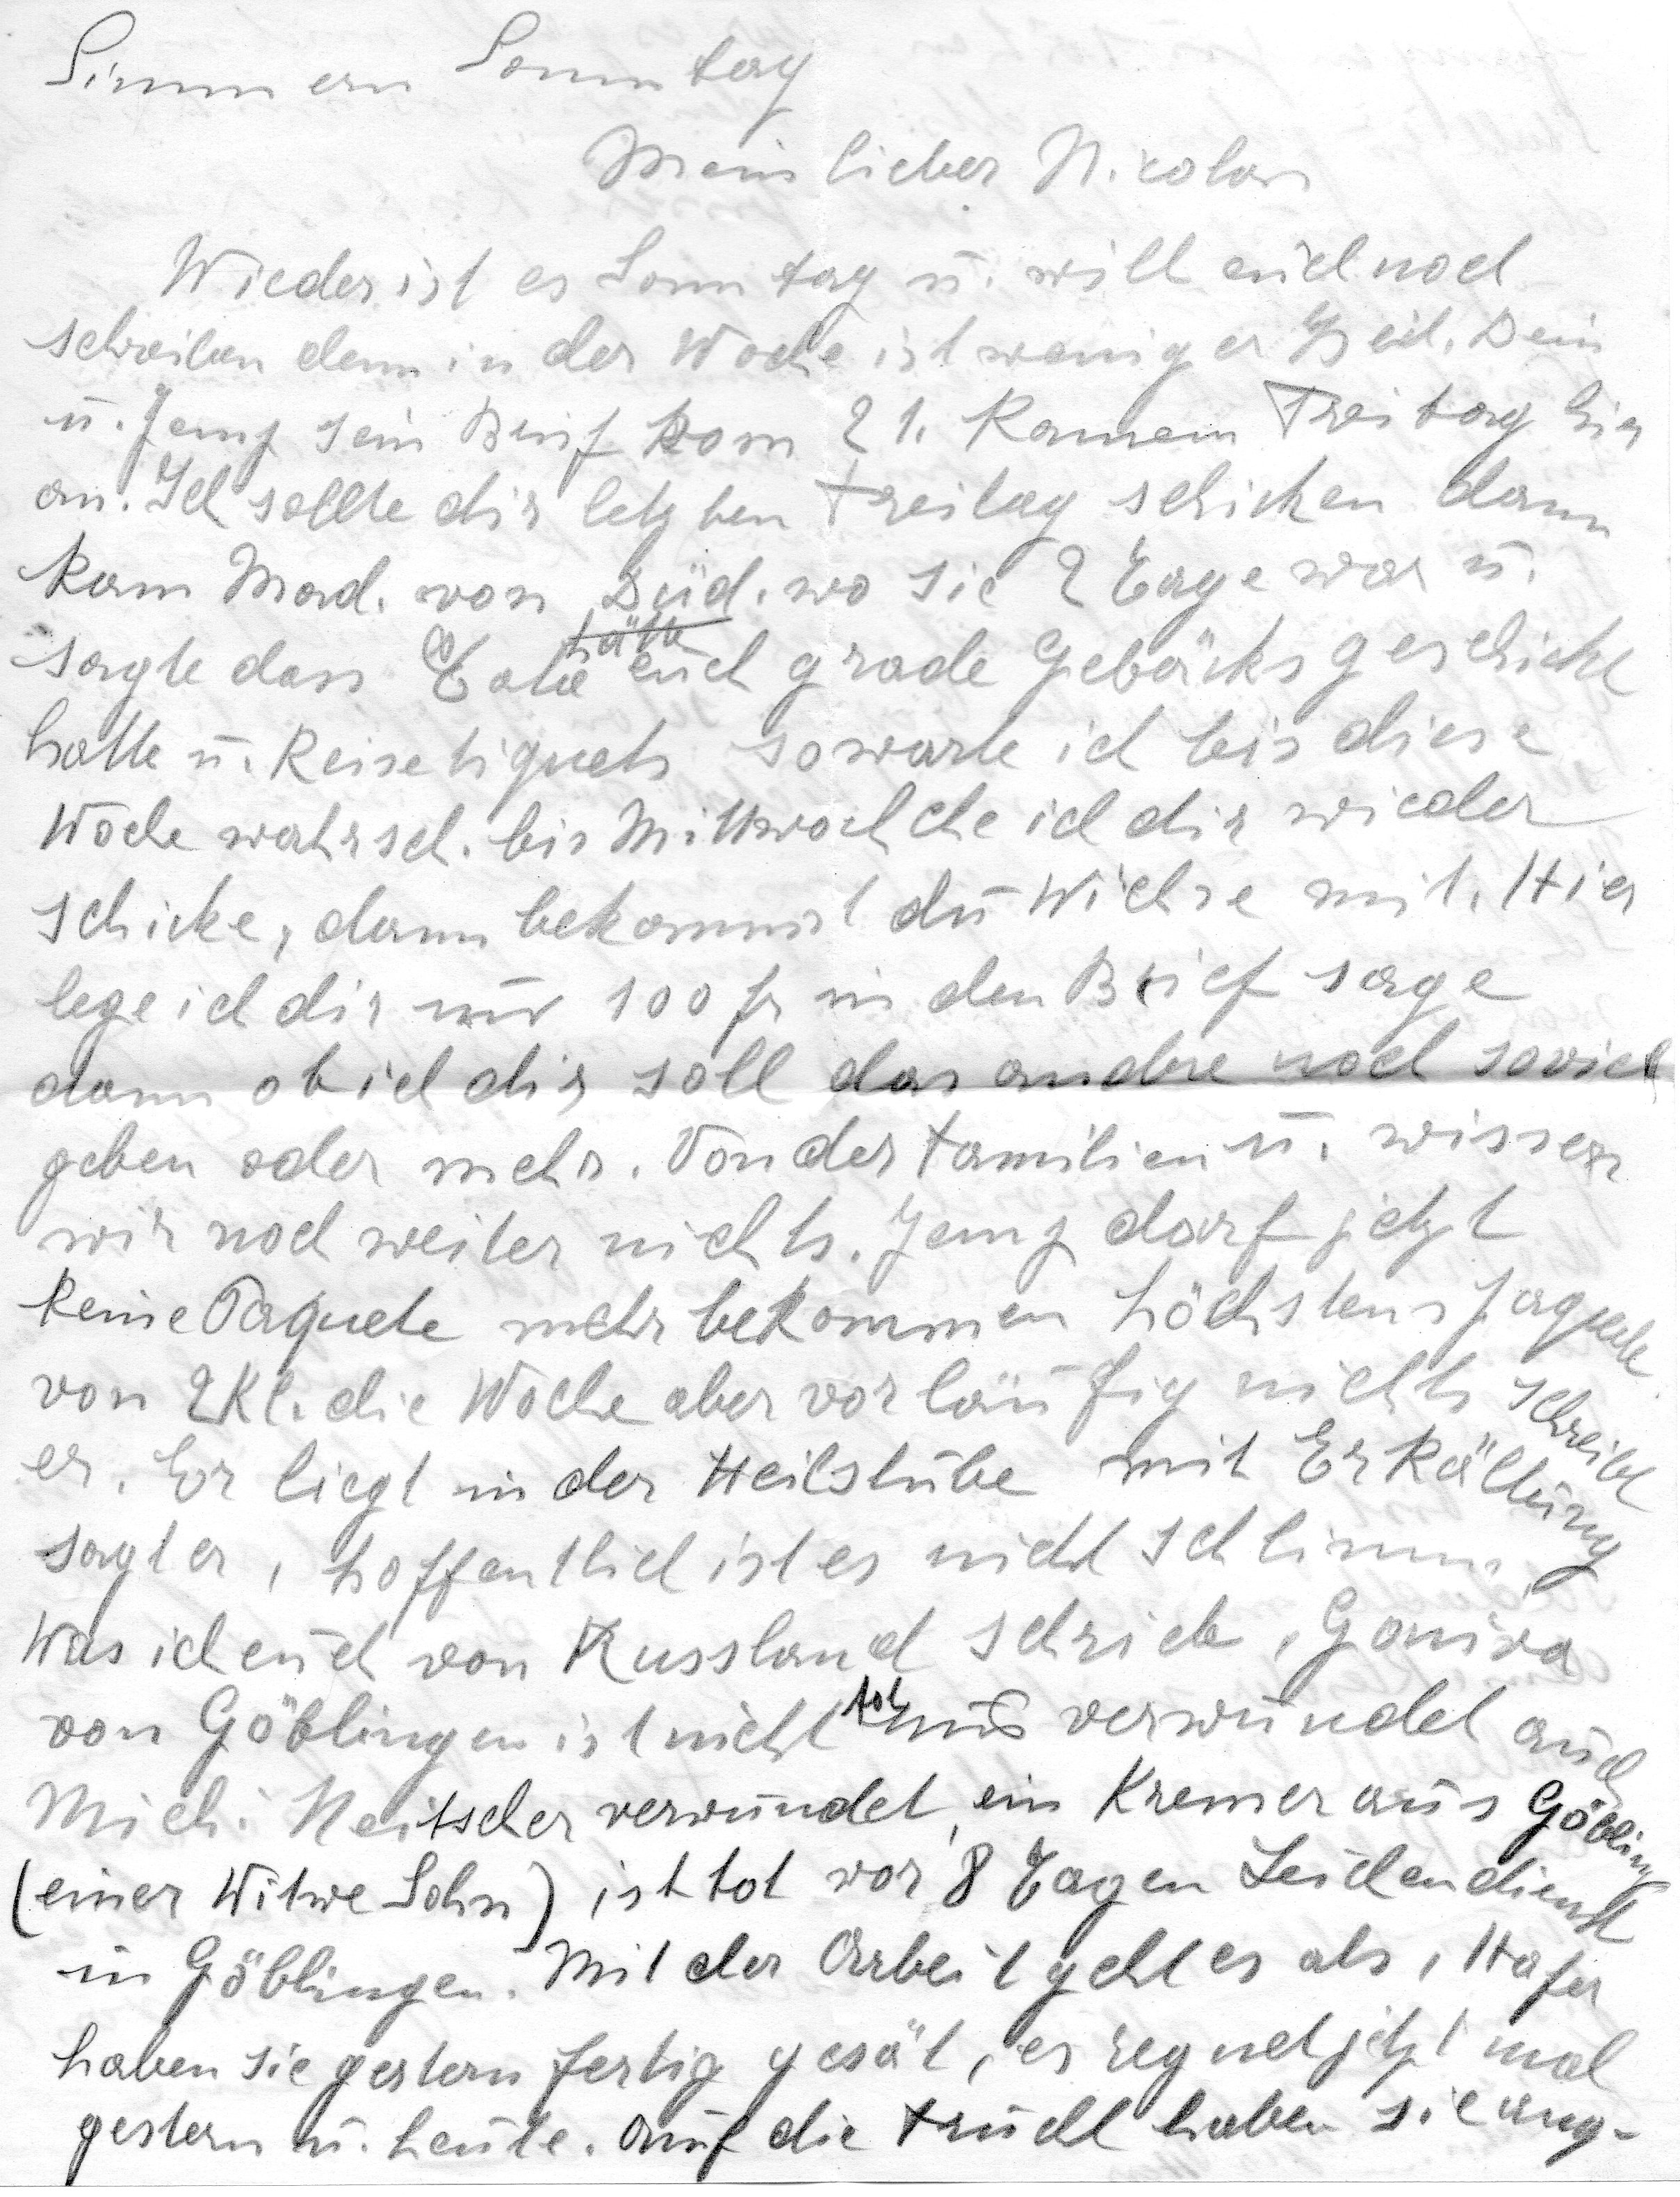 Simmern Sonntag
Mein lieber Nicolas
Wieder ist es Sonntag u. will euch noch
schreiben denn in der Woche ist weniger Zeit. Dein
u. Jemg sein Brief vom 21. kamen Freitag hier
an. Ich sollte dir letzten Freitag schicken dann
kam Mad. von Düd. wo sie 2 Tage war u.
sagte dass euch grade Gebäcks geschickt
hatte u. Reisetiquets so warte ich bis diese
Woche wahrsch. bis Mittwoch ehe ich dir wieder
schicke, dann bekommst du Wichse mit. Hier
lege ich dir nur 100 fr in den Brief sage
dann ob ich dir soll das andre noch soviel
geben oder mehr. Von der Familien u. wissen
wir noch weiter nichts. Jemg darf jetzt
keine Paquete mehr bekommen höchstens paquete
von 2 Kl. die Woche aber vorläufig nichts schreibt
er. Er liegt in der Heilstube mit Erkältung
sagt er, hoffentlich ist es nicht schlimm.
Was ich euch von Russland schrieb, Goniva
von Göblingen ist nicht tot nur verwundet auch
Mich. Neitscher verwundet, ein Kremer aus Göbling
(einer Witwe Sohn) ist tot vor 8 Tagen Leichendienst
in Göblingen. Mit der Arbeit geht es als, Hafer
haben sie gestern fertig gesät, es regnet jetzt mal
gestern u. heute. Auf die Frucht haben sie ang-